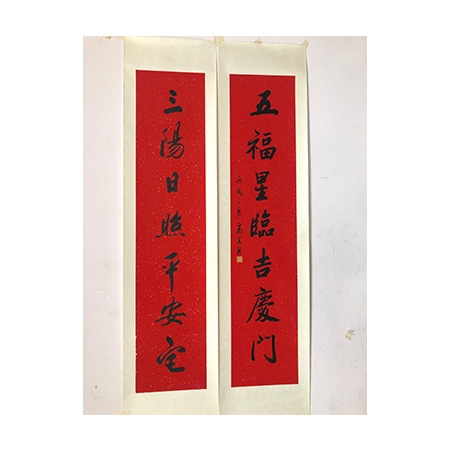 三陽日照平安宅
五福星臨吉慶门